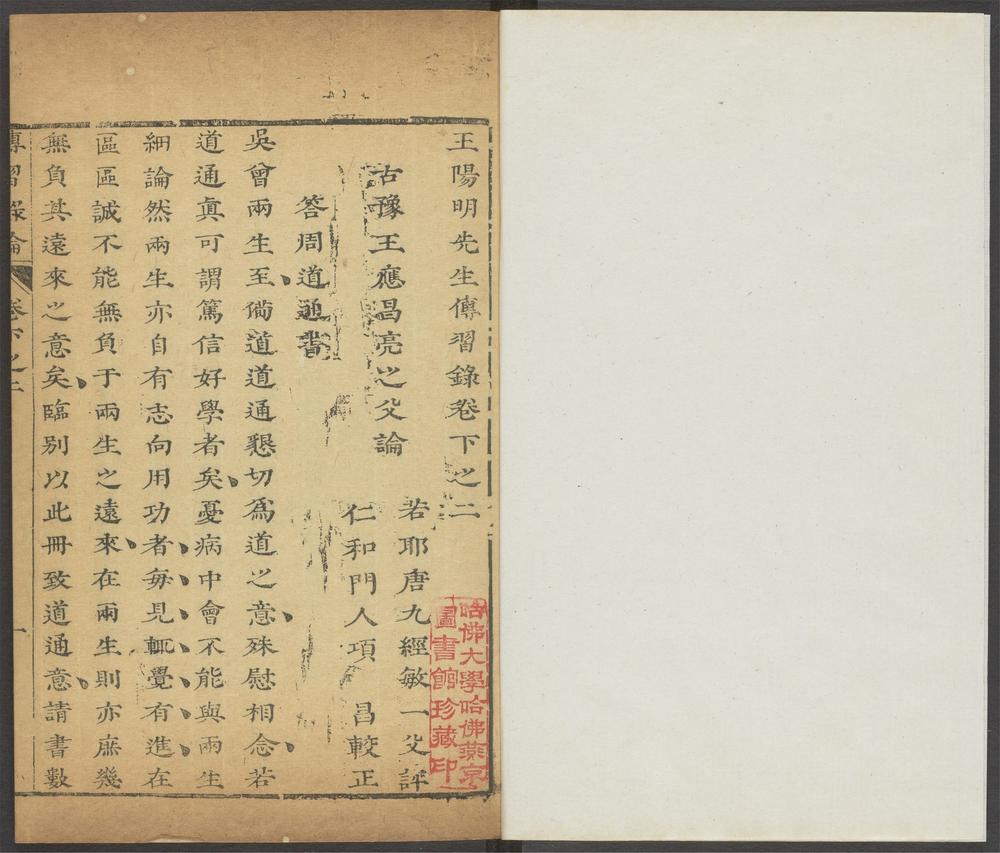 王陽明先生傳習錄卷下之二
若耶唐九經敏一父評
古豫王應昌亮之父論
仁和門人項 昌較正
答周道通書
吳曾兩生至備道道通懇切爲道之意殊慰相念若
道通真可謂篤信好學者矣憂病中會不能與兩生
細論然兩生亦自有志向用功者每見輒覺有進在
區區誠不能無負于兩生之遠來在兩生則亦庶幾
無負其遠來之意矣臨别以此冊致道通意請書數
傳習錄論
卷下之二
一
哈佛大學哈佛燕京
圖書館珍藏印